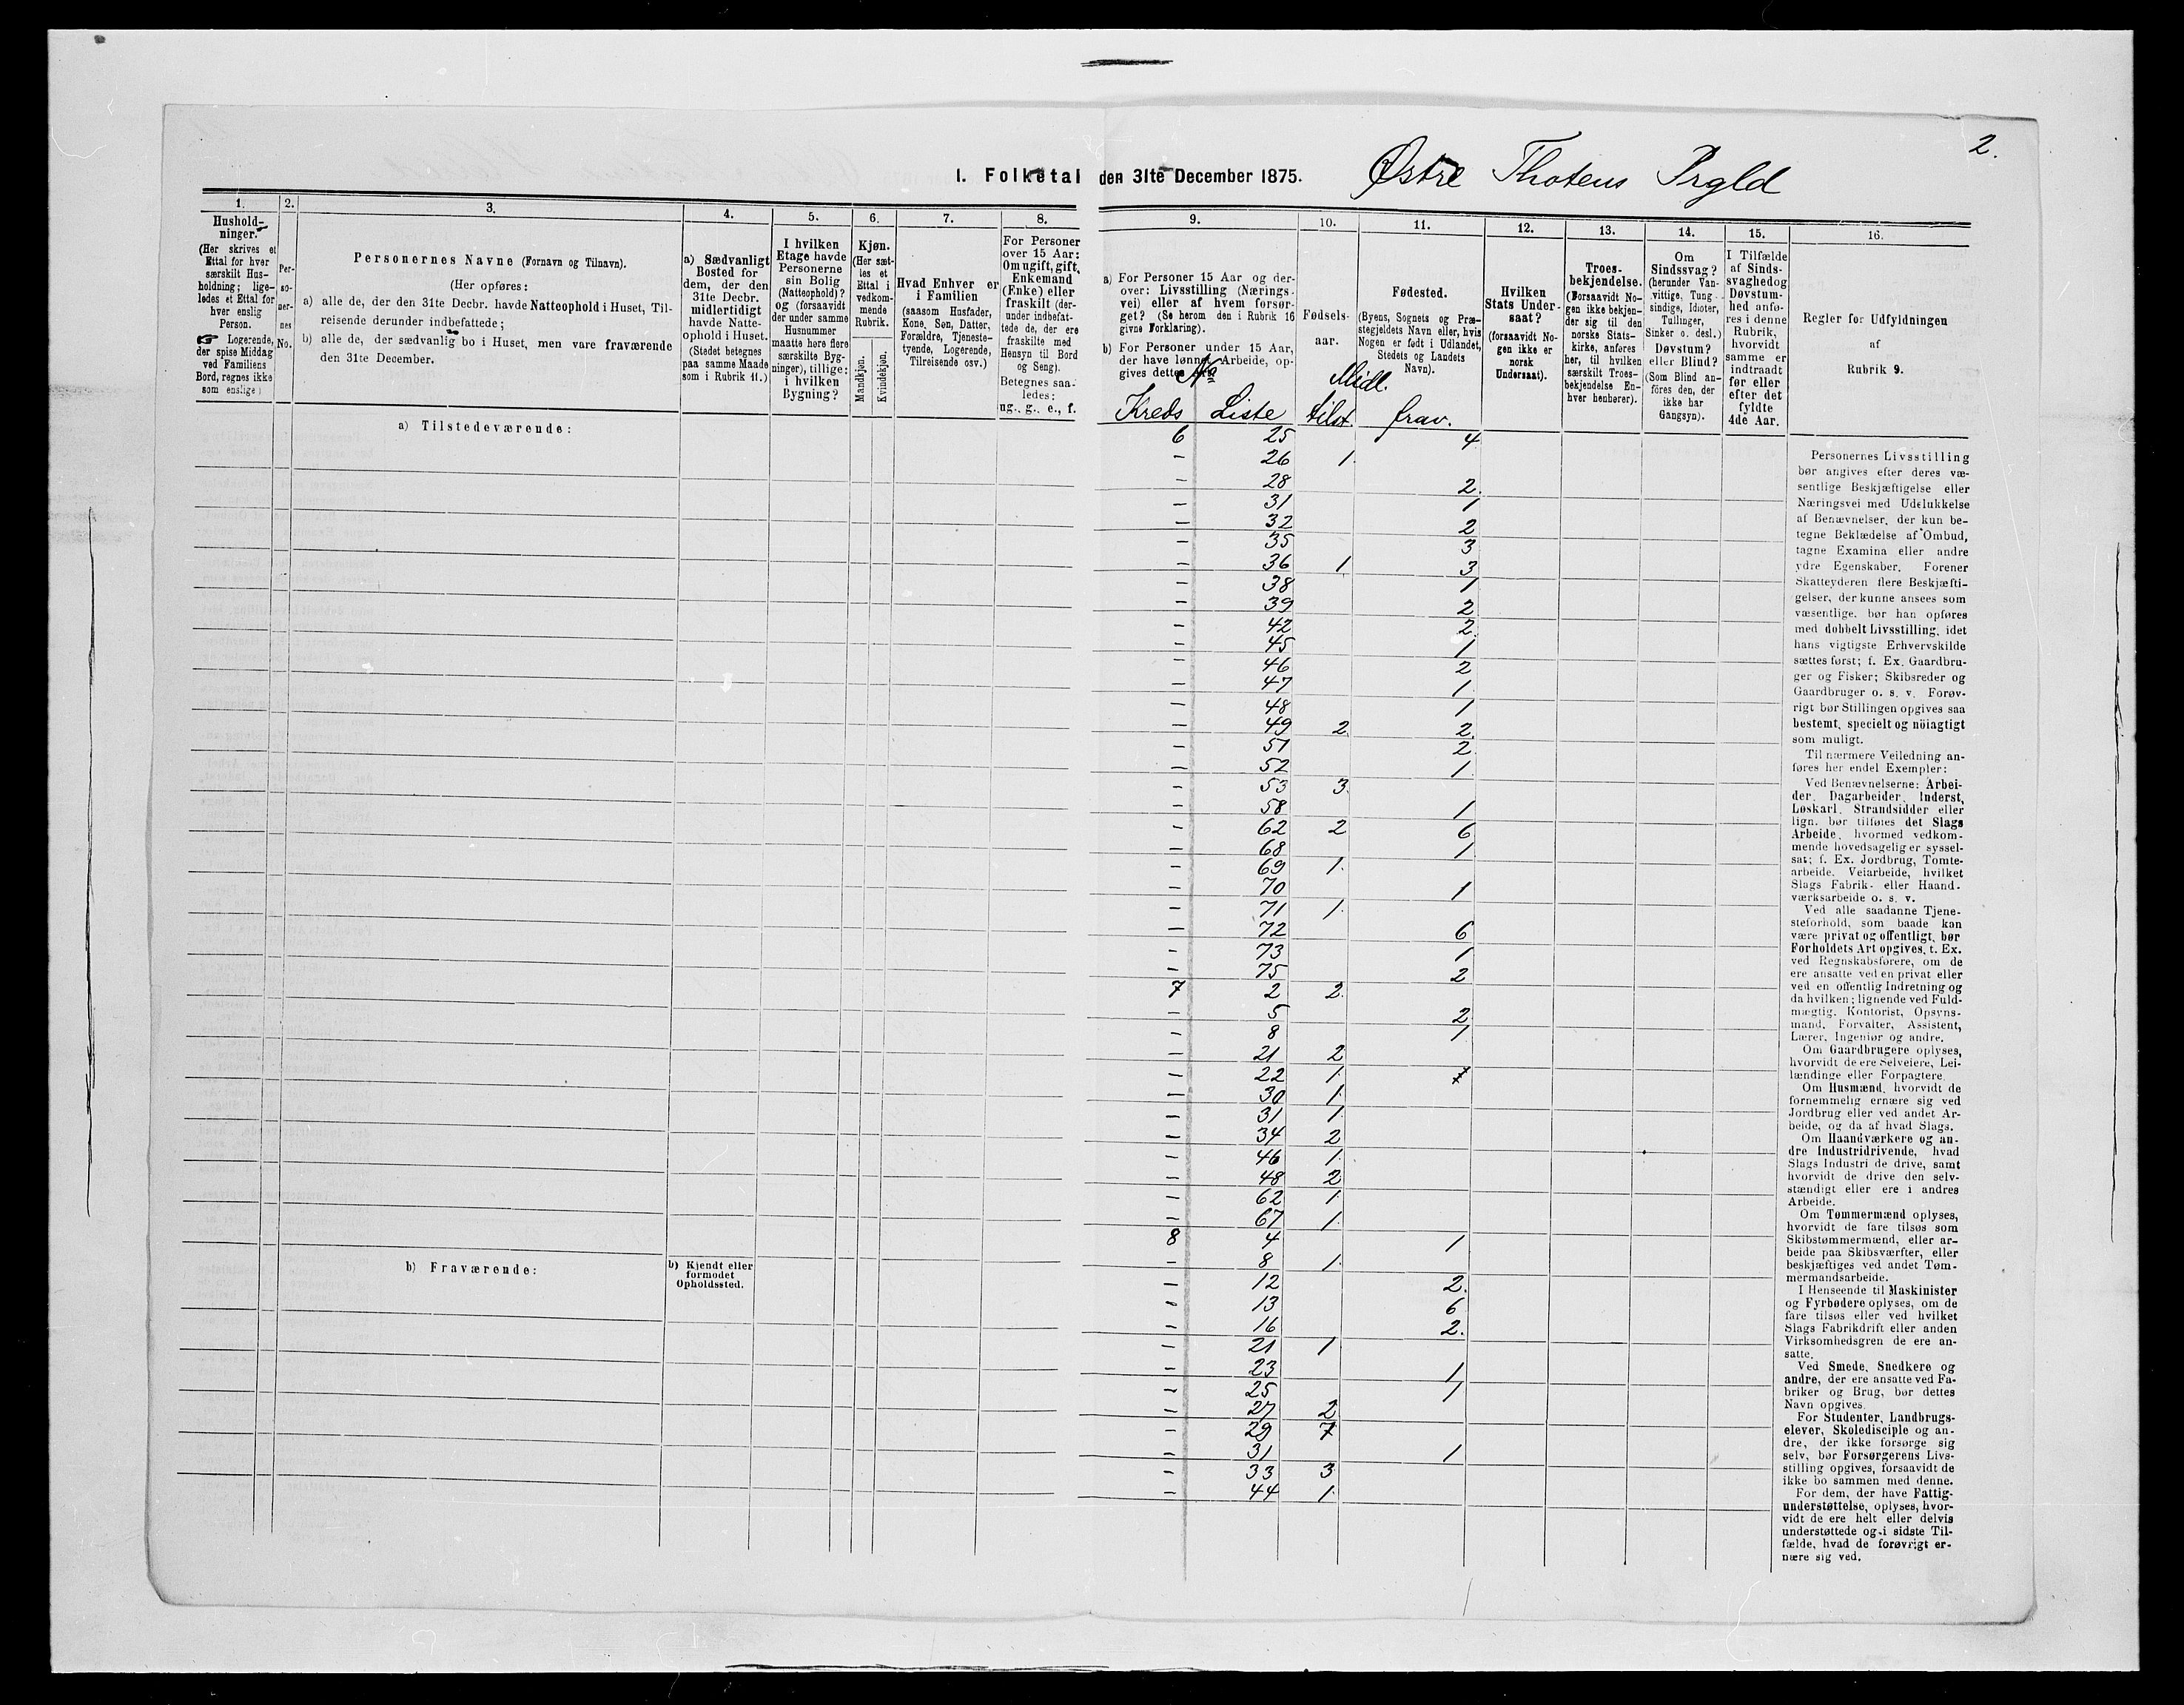 2.
I. Folketal den 31te December 1875. Østre Thotens Prgld
1.
Hushold-
ninger.
(Her skrives et
Ettal for hver
særskilt Hus-
holdning; lige-
ledes et Ettal for
hver enslig
Person.
☞ Logerende,
der spise Middag
ved Familiens
Bord, regnes ikke
som enslige)
2.
Per-
so-
ner-
nes
No.
3.
Personernes Navne (Fornavn og Tilnavn).
(Her opføres:
a) alle de, der den 31te Decbr. havde Natteophold i Huset, Til-
reisende derunder indbefattede;
b) alle de, der sædvanlig bo i Huset, men vare fraværende
den 31te December.
4.
a) Sædvanligt
Bosted for
dem, der den
31te Decbr.
midlertidigt
havde Natte-
ophold i Huset.
(Stedet betegnes
paa samme Maade
som i Rubrik 11.)
5.
I hvilken
Etage havde
Personerne
sin Bolig
(Natteophold)?
og (forsaavidt
der under samme
Husnummer
maatte høre flere
særskilte Byg-
ninger), tillige:
i hvilken
Bygning?
6.
Kjøn.
(Her sæt-
tes et
Ettal i
vedkom-
mende
Rubrik.
Mandkjøn.
Kvindekjøn.
7.
Hvad Enhver er
i Familien
(saasom Husfader,
Kone, Søn, Datter,
Forældre, Tjeneste-
tyende, Logerende,
Tilreisende osv.)
8.
For Personer
over 15 Aar:
Om ugift, gift,
Enkemand
(Enke) eller
fraskilt (der-
under indbefat-
tede de, der ere
fraskilte med
Hensyn til Bord
og Seng).
Betegnes saa-
ledes:
ug., g., e., f.
9.
a) For Personer 15 Aar og der-
over: Livsstilling (Nærings-
vei) eller af hvem forsør-
get? (Se herom den i Rubrik 16
givne Forklaring).
b) For Personer under 15 Aar,
der have lønnet Arbeide, op-
gives dettes Art.
10.
Fødsels-
aar.
11.
Fødested.
(Byens, Sognets og Præ-
stegjeldets Navn eller, hvis
Nogen er født i Udlandet,
Stedets og Landets
Navn).
12.
Hvilken
Stats Under-
saat?
(forsaavidt No-
gen ikke er
norsk
Undersaat).
13.
Troes-
bekjendelse.
(Forsaavidt No-
gen ikke bekjen-
der sig til den
norske Stats-
kirke, anføres
her, til hvilken
særskilt Troes-
bekjendelse En-
hver henhører).
14.
Om
Sindssvag?
(herunder Van-
vittige, Tung-
sindige, Idioter,
Tullinger,
Sinker o. desl.)
Døvstum?
eller Blind?
(Som Blind an-
føres den, der
ikke har
Gangsyn).
15.
I Tilfælde
af Sinds-
svaghed og
Døvstum-
hed anfø-
res i denne
Rubrik,
hvorvidt
samme er
indtraadt
før eller
efter det
fyldte
4de Aar.
16.
Regler for Udfyldningen
af
Rubrik 9.
No Midl.
Kreds Liste tilst. frav.
a) Tilstedeværende:
6 25 4
- 26 1.
- 28 2.
- 31 1
- 32 2
- 35 3
- 36 1 3
- 38 1
- 39 2
- 42 2.
- 45 1
- 46 2
- 47 1
- 48 1
- 49 2 2.
- 51 2
- 52 1.
- 53 3.
- 58 1
- 62 2 6
- 68 1
- 69 1.
- 70 1
- 71 1.
- 72 6
- 73 1
- 75 2
7 2 2.
- 5 2.
- 8 1
- 21 2
- 22 1.
- 30 1.
- 31 1.
- 34 2
- 46 1.
- 48 2
- 62 1.
- 67 1.
8 4 1
- 8 1.
- 12 2.
- 13 6
- 16 2.
- 21 1
- 23 1
- 25 1
- 27 2
- 29 7
- 31 1
- 33 3
- 44 1.
b) Fraværende:
b) Kjendt eller
formodet
Opholdssted.
Personernes Livsstilling
bør angives efter deres væ-
sentlige Beskjæftigelse eller
Næringsvei med Udelukkelse
af Benævnelser, der kun be-
tegne Beklædelse af Ombud,
tagne Examina eller andre
ydre Egenskaber. Forener
Skatteyderen flere Beskjæfti-
gelser, der kunne ansees som
væsentlige, bør han opføres
med dobbelt Livsstilling, idet
hans vigtigste Erhvervskilde
sættes først; f. Ex. Gaardbru-
ger og Fisker; Skibsreder og
Gaardbruger o. s. v. Forøv-
rigt bør Stillingen opgives saa
bestemt, specielt og nöiagtigt
som muligt.
Til nærmere Veiledning an-
føres her endel Exempler:
Ved Benævnelserne: Arbei-
der, Dagarbeider, Inderst,
Løskarl, Strandsidder eller
lign. bør tilføies det Slags
Arbeide, hvormed vedkom-
mende hovedsagelig er syssel-
sat; f. Ex. Jordbrug, Tomte-
arbeide, Veiarbeide, hvilket
Slags Fabrik- eller Haand-
værksarbeide o. s. v.
Ved alle saadanne Tjene-
steforhold, som baade kan
være privat og offentligt, bør
Forholdets Art opgives, t. Ex.
ved Regnskabsførere, om de
ere ansatte ved en privat eller
ved en offentlig Indretning og
da hvilken; lignende ved Fuld-
mægtig, Kontorist, Opsyns-
mand, Forvalter, Assistent,
Lærer, Ingeniør og andre.
Om Gaardbrugere oplyses,
hvorvidt de ere Selveiere, Lei-
lændinge eller Forpagtere.
Om Husmænd, hvorvidt de
fornemmelig ernære sig ved
Jordbrug eller ved andet Ar-
beide, og da af hvad Slags.
Om Haandværkere og an-
dre Industridrivende, hvad
Slags Industri de drive, samt
hvorvidt de drive den selv-
stændigt eller ere i andres
Arbeide.
Om Tømmermænd oplyses,
hvorvidt de fare tilsøs som
Skibstømmermænd, eller ar-
beide paa Skibsværfter, eller
beskjæftiges ved andet Tøm-
mermandsarbeide.
I Henseende til Maskinister
og Fyrbødere oplyses, om de
fare tilsøs eller ved hvilket
Slags Fabrikdrift eller anden
Virksomhedsgren de ere an-
satte.
Ved Smede, Snedkere og
andre, der ere ansatte ved Fa-
briker og Brug, bør dettes
Navn opgives.
For Studenter, Landbrugs-
elever, Skoledisciple og an-
dre, der ikke forsørge sig
selv, bør Forsørgerens Livs-
stilling opgives, forsaavidt de
ikke bo sammen med denne.
For dem, der have Fattig-
understøttelse, oplyses, hvor-
vidt de ere helt eller delvis
understøttede og i sidste Til-
fælde, hvad de forøvrigt er-
nære sig ved.